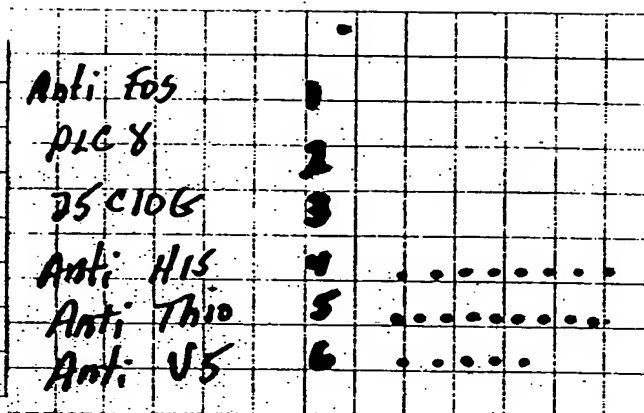 Anti Fos 1
PLC γ 2
D5C10G 3
Anti HIS 4
Anti Thio 5
Anti V5 6